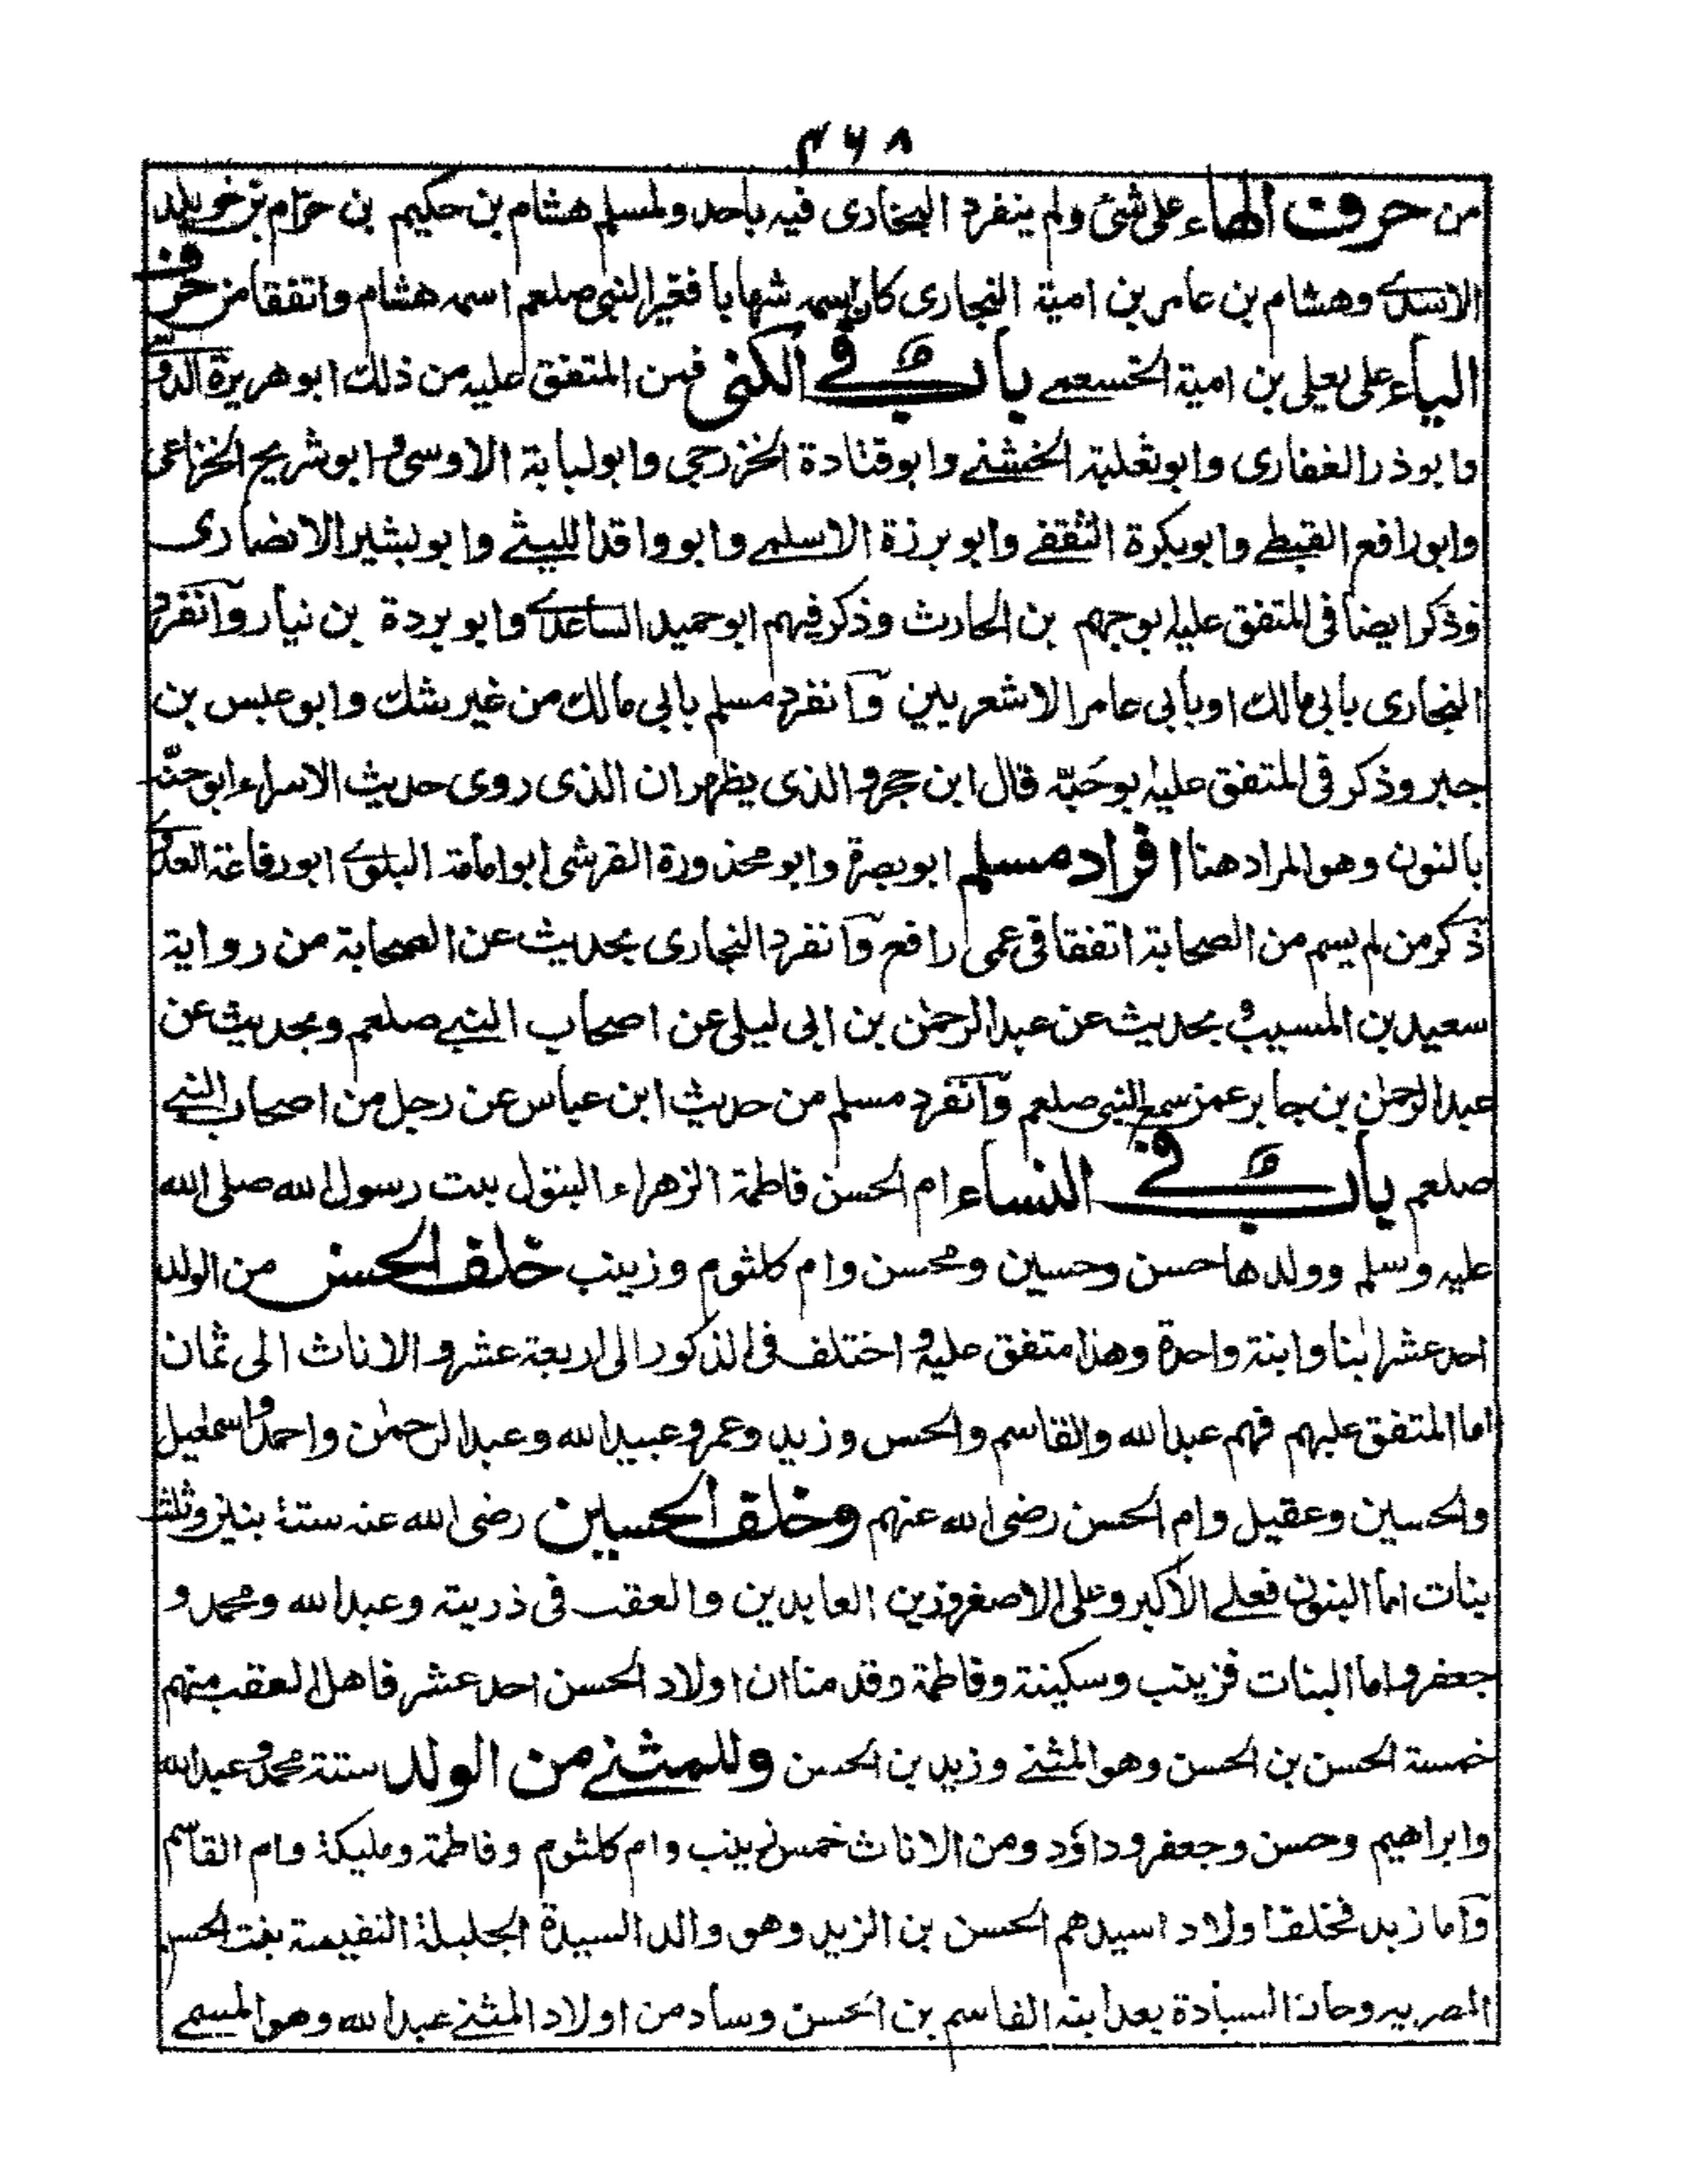 ۳۶۸
من حرف الهاء على شئ ولم ينفرد البخارى فيه باحد ولمسلم هشام بن حكيم بن حزام بن خويلد
الاسدى وهشام بن عامر بن امية النجارى كان اسمه شهابا فغير النبى صلعم اسمه هشام واتفقا من حرف
الياء على يعلى بن امية الخسعمى باب فى الكنى فمن المتفق عليه من ذلك ابو هريرة الدوسى
وابوذر الغفارى وابو ثعلبة الخشنى وابو قتادة الخزرجى وابو لبابة الاوسى وابو شريح الخزاعى
وابو رافع القبطى وابو بكرة الثقفى وابو برزة الاسلمى وابو واقد الليثى وابو بشير الانصارى
وذكر ايضا فى المتفق عليه ابو جهم بن الحارث وذكر فيهم ابو حميد الساعدى وابو بردة بن نيار وانفرد
البخارى بابى مالك او بابى عامر الاشعريين وانفرد مسلم بابى مالك من غير شك وابو عبس بن
جبر وذكر فى المتفق عليه ابو حَبّة قال ابن حجر والذى يظهر ان الذى روى حديث الاسراء ابو حنّة
بالنون وهو المراد هنا افراد مسلم ابو بصرة وابو محذورة القرشى ابو امامة البلوى ابو رفاعة العدوى
ذكر من لم يسم من الصحابة اتفقا فى عمى رافع وانفرد البخارى بحديث عن الصحابة من رواية
سعيد بن المسيب و بحديث عن عبد الرحمٰن بن ابى ليلى عن اصحاب النبى صلعم وبحديث عن
عبد الرحمٰن بن جابر عمن سمع النبى صلعم وانفرد مسلم من حديث ابن عباس عن رجل من اصحاب النبى
صلعم باب فى النساء ام الحسن فاطمة الزهراء البتول بنت رسول الله صلى الله
عليه وسلم وولدها حسن وحسين ومحسن وام كلثوم وزينب خلف الحسن من الولد
احد عشر ابنا وابنة واحدة وهذا متفق عليه و اختلف فى الذكور الى اربعة عشر و الاناث الى ثمان
اما المتفق عليهم فهم عبد الله والقاسم والحسن وزيد وعمر وعبيد الله وعبد الرحمٰن واحمد واسمٰعيل
والحسين وعقيل وام الحسن رضى الله عنهم وخلف الحسين رضى الله عنه ستة بنين وثلث
بنات اما البنون فعلى الاكبر وعلى الاصغر وزين العابدين والعقب فى ذريته وعبد الله ومحمد و
جعفر واما البنات فزينب وسكينة وفاطمة وقد منا ان اولاد الحسن احد عشر فاهل العقب منهم
خمسة الحسن بن الحسن وهو المثنى وزيد بن الحسن وللمثنى من الولد ستة محمد وعبد الله
وابراهيم وحسن وجعفر وداؤد ومن الاناث خمس زينب وام كلثوم وفاطمة ومليكة وام القاسم
واما زيد فخلف اولاد اسيدهم الحسن بن الزيد وهو والد السيدة الجليلة النفيسة بنت الحسن
المصريه وحاز السيادة بعد ابنه القاسم بن الحسن وساد من اولاد المثنى عبد الله وهو المسمى